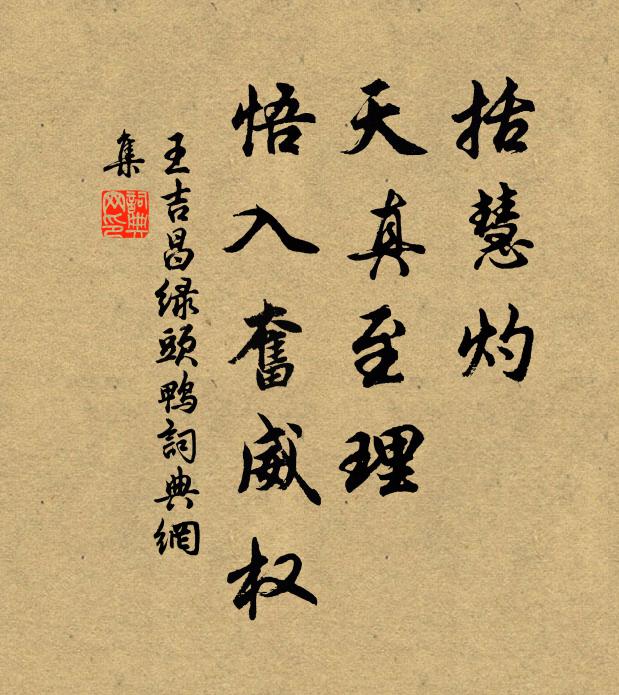 括慧灼
天真至理
悟入奮威权
王吉昌绿頭鸭詞典網
集
詞典
网印